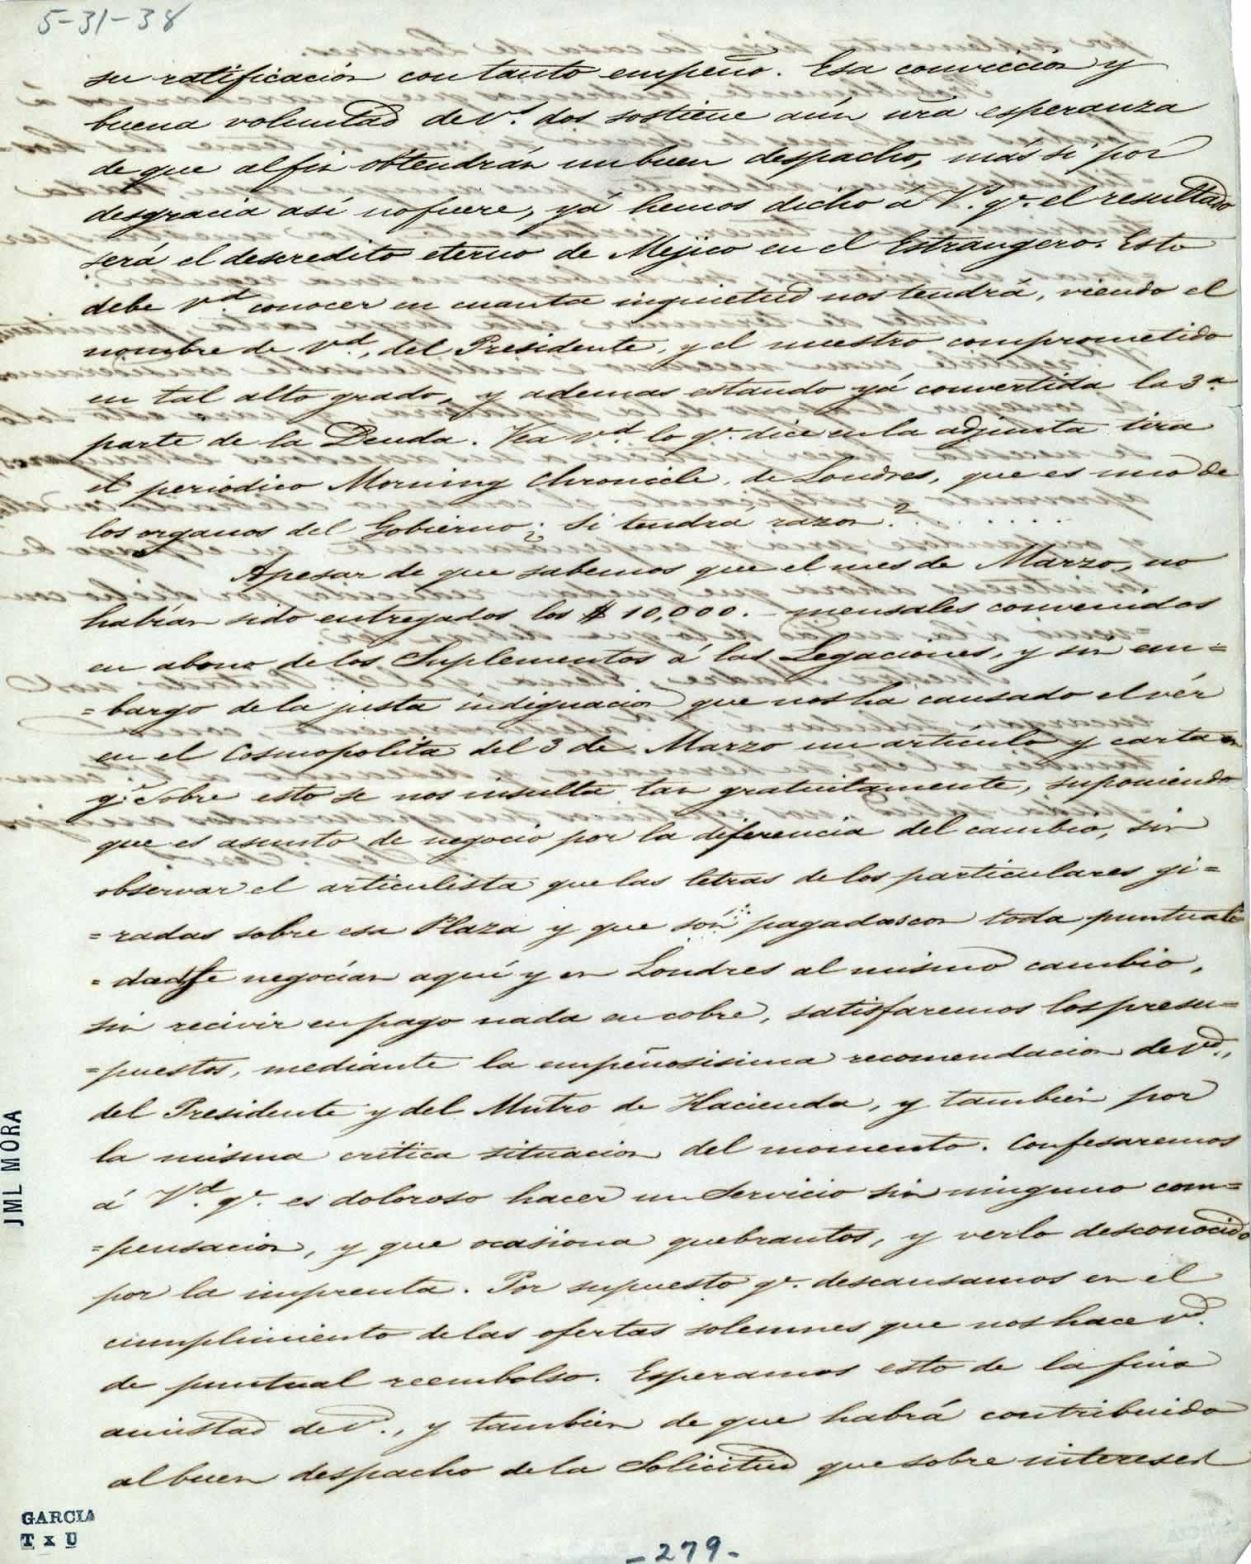 5-31-38
su ratificación con tanto empeño. Esa convicción y
buena voluntad de V.ᵈ nos sostiene aún una esperanza
de que al fin obtendrán un buen despacho, más si por
desgracia así no fuere, yá hemos dicho á V. q.ᵉ el resultado
será el descredito eterno de Mejico en el Estrangero. Esto
debe V.ᵈ conocer en cuanta inquietud nos tendrá, viendo el
nombre de V.ᵈ, del Presidente, y el nuestro comprometido
en tal alto grado, y ademas estando yá convertida la 3ª
parte de la Deuda. Vea V.ᵈ lo q.ᵉ dice en la adjunta tira
el periódico Morning Chronicle, de Londres, que es uno de
los organos del Gobierno; ¿Si tendrá razon?. . . . . .
Apesar de que sabemos que el mes de Marzo, no
habían sido entregados los $10,000. mensales convenidos
en abono de los Suplementos á las Legaciones, y sin em=
=bargo de la justa indignacion que nos ha causado el vér
en el Cosmopolita del 3 de Marzo un artículo y carta en
q.ᵉ sobre esto se nos insulta tan gratuitamente, suponiendo
que es asunto de negocio por la diferencia del cambio, sin
observar el articulista que las letras de los particulares gi=
=radas sobre esa Plaza y que són pagadas con toda puntuali
=dad se negocían aquí y en Londres al mismo cambio,
sin recivir en pago nada en cobre, satisfaremos los presu=
=puestos, mediante la empeñosisima recomendacion de V.ᵈ,
del Presidente y del Mntro de Hacienda, y también por
la misma critica situacion del momento. Confesaremos
á V.ᵈ q.ᵉ es doloroso hacer un Servicio sin ninguna com=
=pensacion, y que ocasiona quebrantos, y verlo desconocido
por la imprenta. Por supuesto q.ᵉ descansamos en el
cumplimiento de las ofertas solemnes que nos hace V.ᵈ
de puntual reembolso. Esperamos esto de la fina
amistad de V., y tambien de que habrá contribuido
al buen despacho de la Solicitud que sobre intereses
JML MORA
GARCIA
T x U
-279-